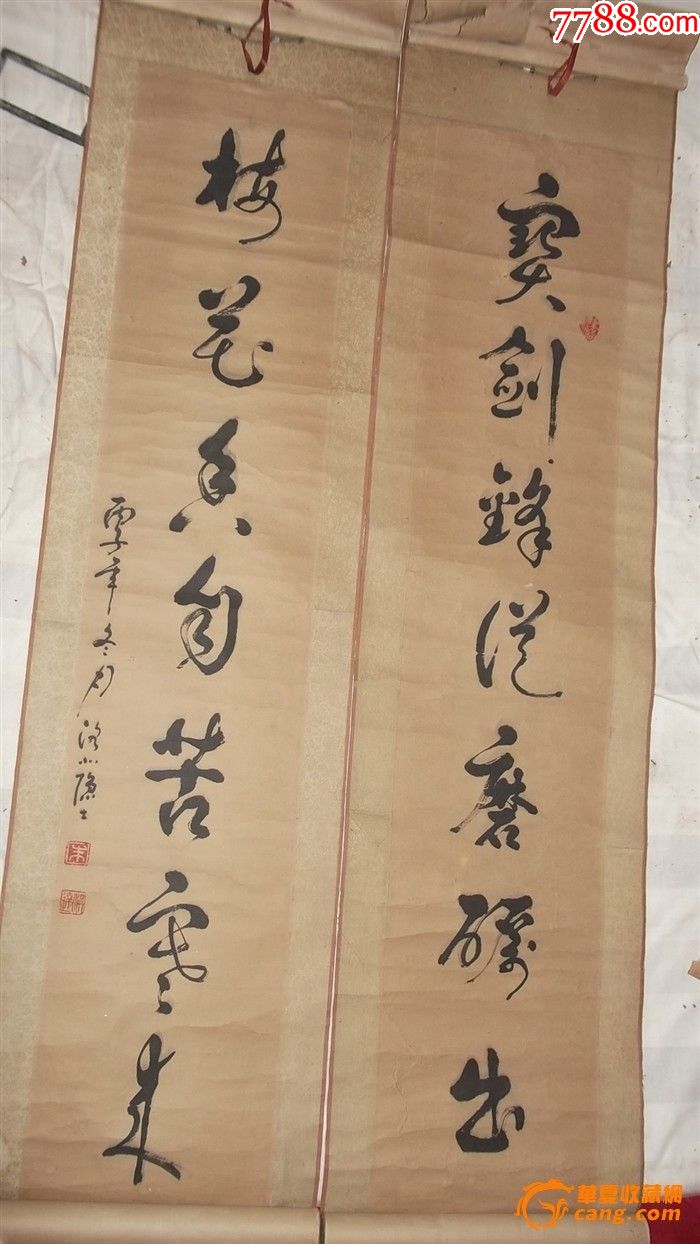 7788.com
寶劍鋒從磨礪出
梅花香自苦寒來
丙子年冬月
華夏收藏網
cang.com